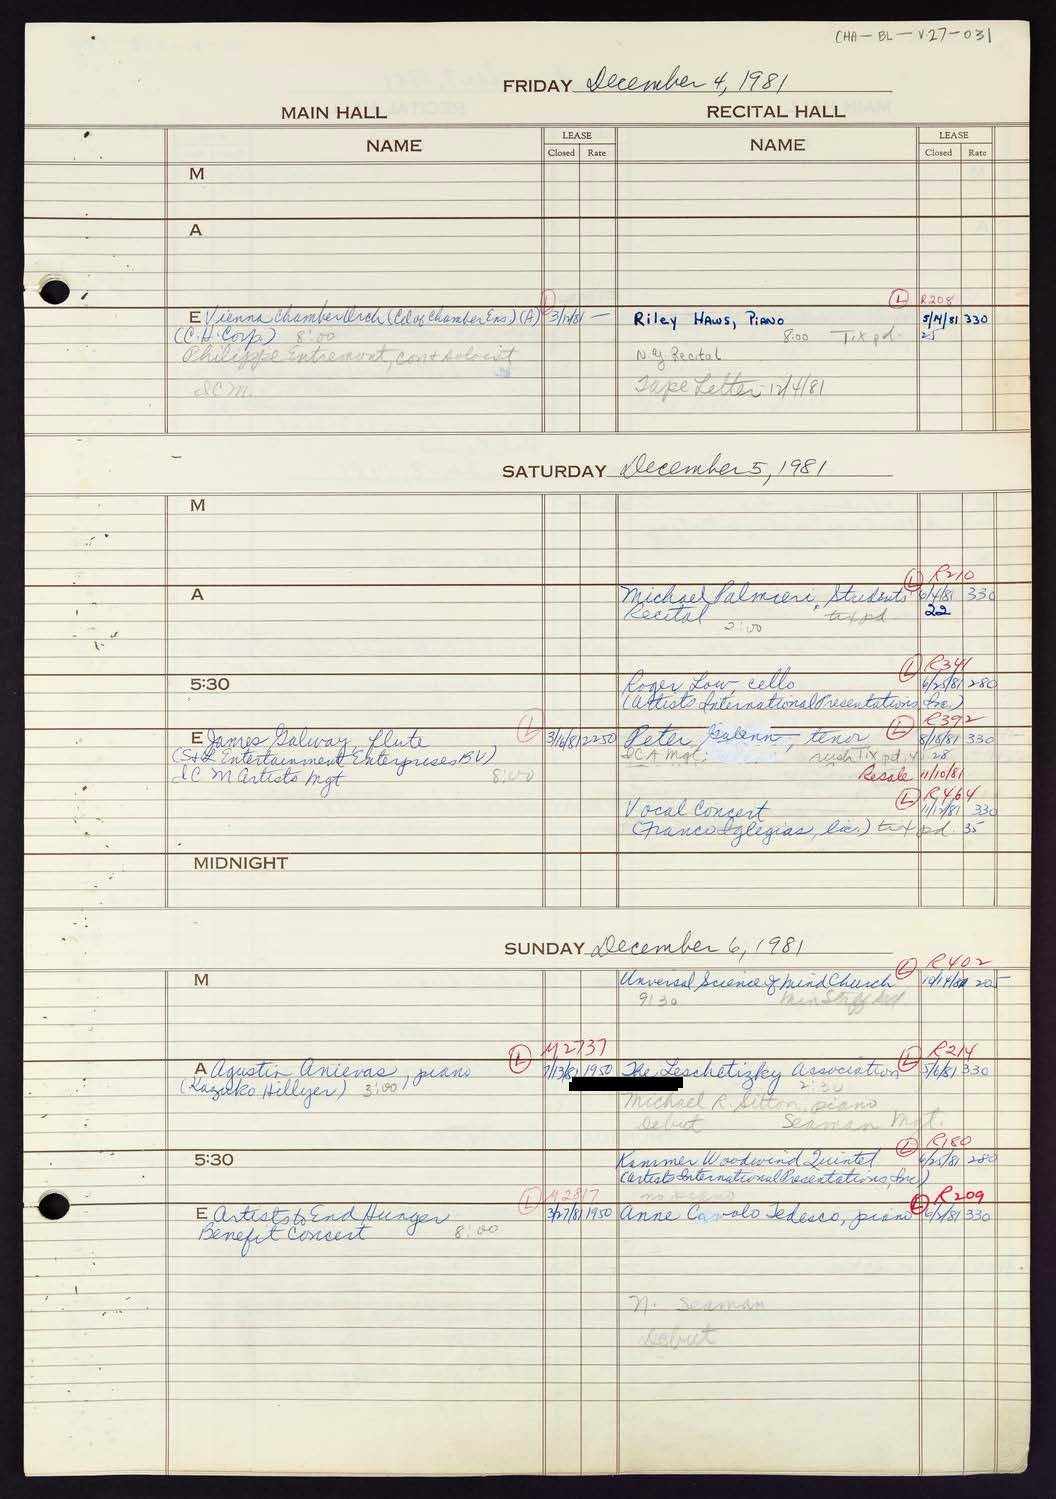 CHA-BL-V.27-031
FRIDAY December 4, 1981
MAIN HALL
RECITAL HALL
NAME
LEASE
Closed Rate
NAME
LEASE
Closed Rate
M
A
E Vienna Chamber Orch (Col of Chamber Ens) (A) L 3/17/81 —
(C.H. Corp.) 8:00
Philippe Entremont, cond & soloist
ICM.
L R208
Riley Haws, Piano 5/14/81 330
8:00 Tix pd 25
N.Y. Recital
Tape Letter 12/4/81
SATURDAY December 5, 1981
M
A
L R210
Michael Palmieri, Students 6/4/81 330
Recital tix pd 22
2:00
5:30
L R341
Roger Low, cello 6/25/81 280
(Artists International Presentations, Inc.)
E James Galway flute L 3/16/81 2250
(S&L Entertainment Enterprises BV)
ICM Artists Mgt 8:00
L R392
Peter, tenor 8/18/81 330
Mgt. rush Tix pd 28
Resale 11/10/81
L R464
Vocal Concert 11/12/81 330
(Franco Iglegias, lic.) tix pd. 35
MIDNIGHT
SUNDAY December 6, 1981
M
L R402
Universal Science of Mind Church 10/14/81 205
9:30 Min Staff
A Agustin Anievas, piano L M2737 7/13/81 1950
(Kazuko Hillyer) 3:00
L R214
The Leschetizky Association 5/6/81 330
2:30
Michael R. Sitton, piano
Debut Seaman Mgt.
5:30
L R180
Kammer Woodwind Quintet 6/25/81 280
(Artists International Presentations, Inc)
no piano
E Artists to End Hunger L M2817 3/27/81 1950
Benefit Concert 8:00
L R209
Anne Cavolo Tedesco, piano 6/2/81 330
N. Seaman
Debut